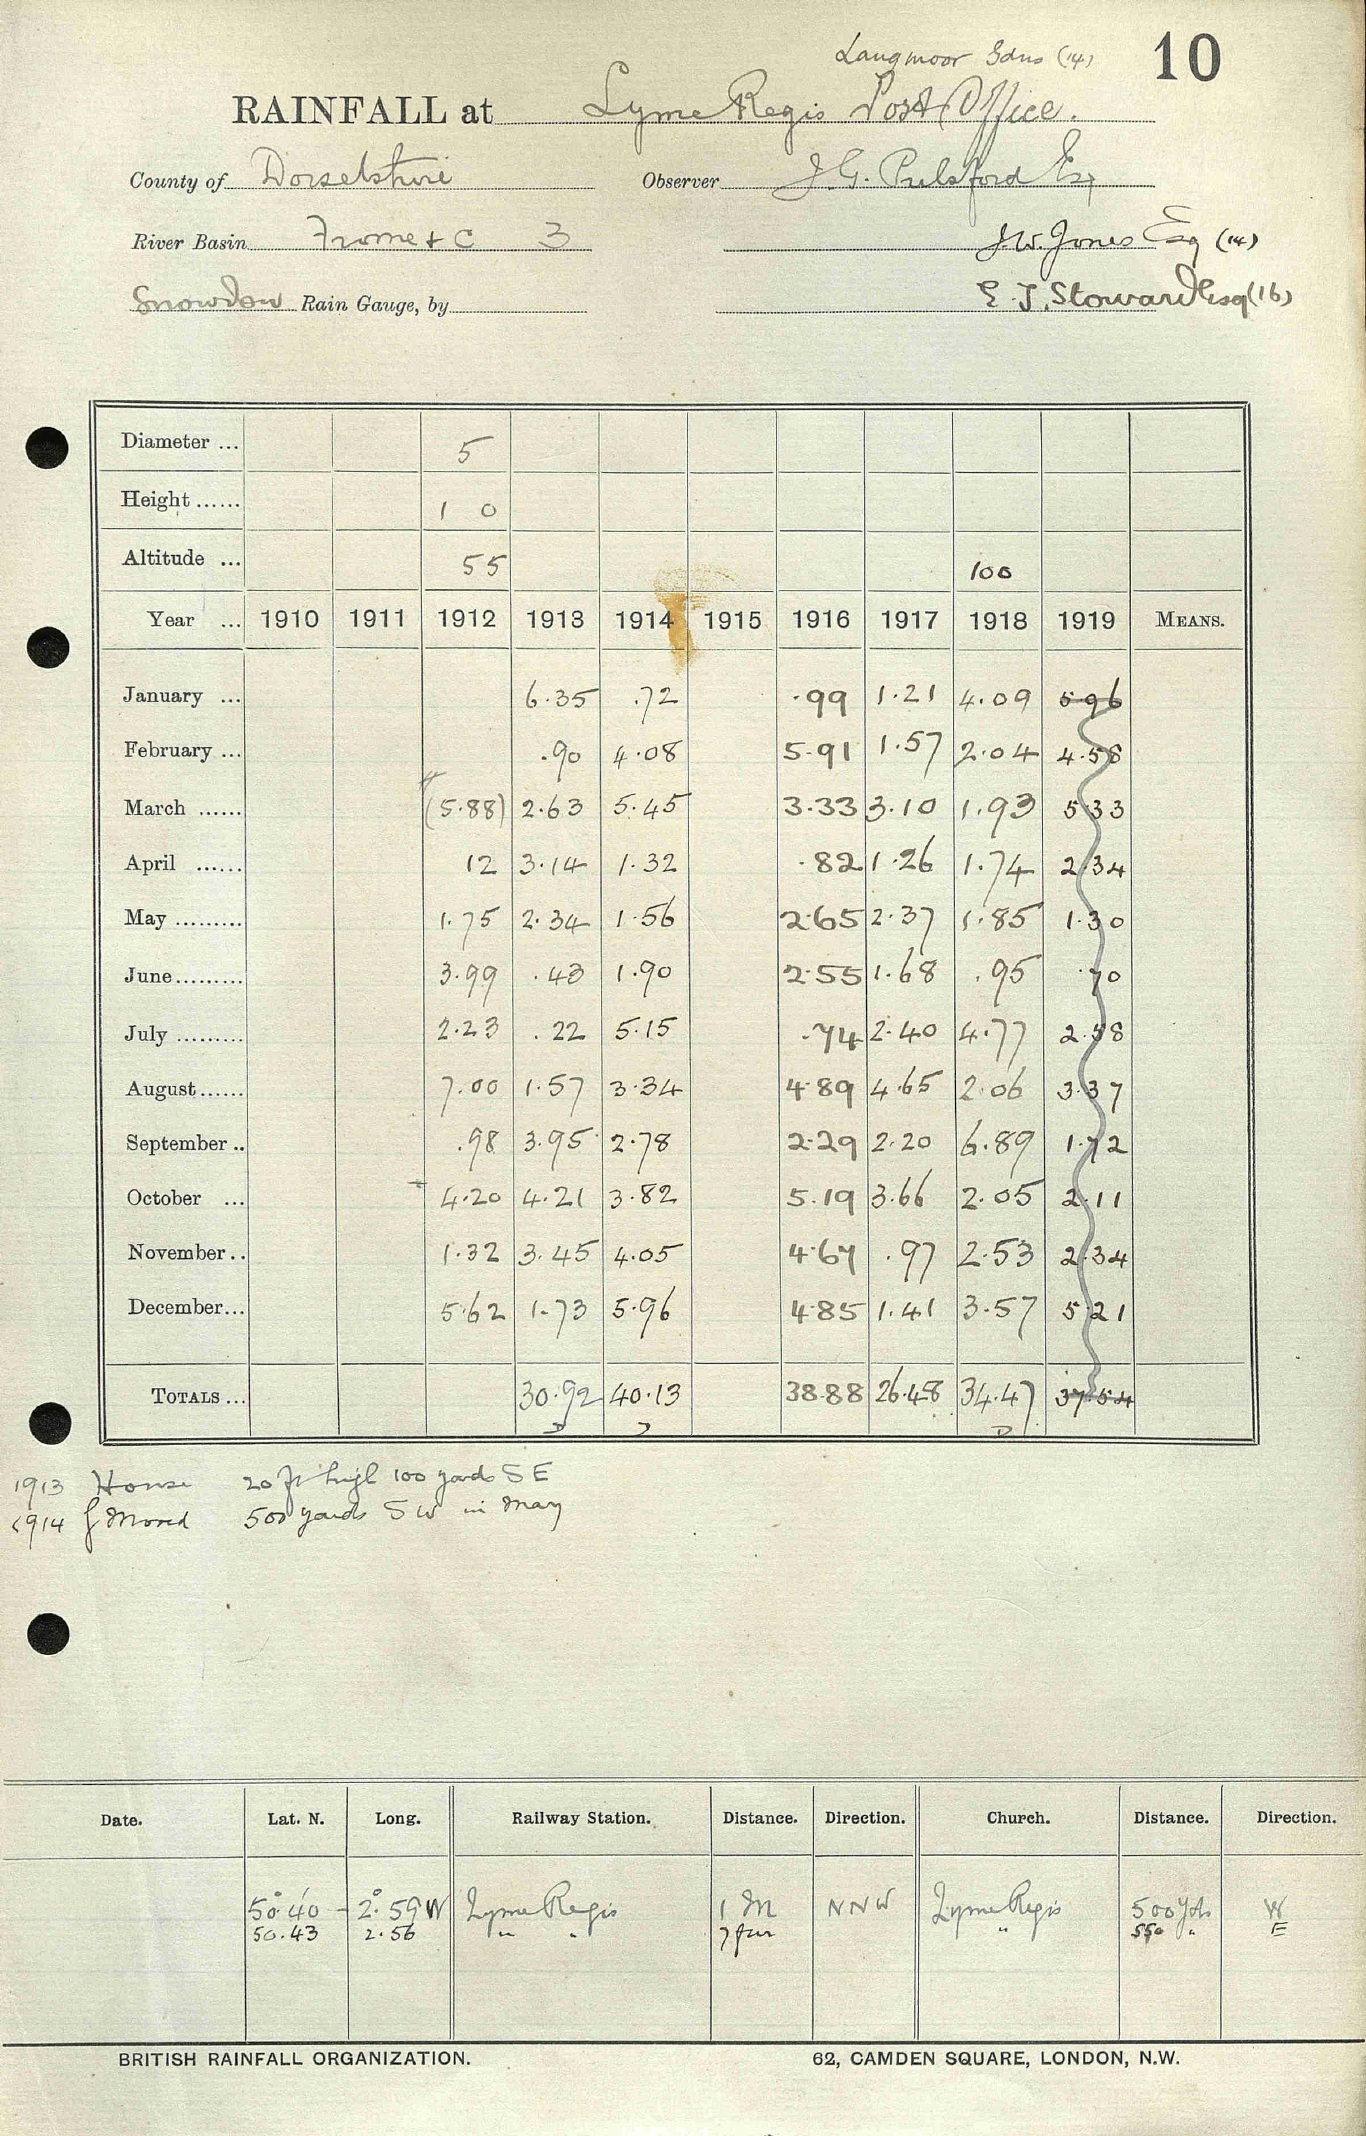 Langmoor Gdns (14) 10
RAINFALL at Lyme Regis Post Office.
County of Dorsetshire Observer J. G. Pulsford Esq
River Basin Frome & C 3 J. W. Jones Esq (14)
Snowdon Rain Gauge, by E. J. Stoward Esq (16)
Diameter ... 5
Height ...... 1 0
Altitude ... 55 100
Year ... 1910 1911 1912 1913 1914 1915 1916 1917 1918 1919 MEANS.
January ... 6.35 .72 .99 1.21 4.09 5.96
February ... .90 4.08 5.91 1.57 2.04 4.58
March ...... (5.88) 2.63 5.45 3.33 3.10 1.93 5.33
April ...... 12 3.14 1.32 .82 1.26 1.74 2.34
May ......... 1.75 2.34 1.56 2.65 2.37 1.85 1.30
June ......... 3.99 .43 1.90 2.55 1.68 .95 .70
July ......... 2.23 .22 5.15 .74 2.40 4.77 2.58
August ...... 7.00 1.57 3.34 4.89 4.65 2.06 3.37
September .. .98 3.95 2.78 2.29 2.20 6.89 1.72
October ... 4.20 4.21 3.82 5.19 3.66 2.05 2.11
November .. 1.32 3.45 4.05 4.67 .97 2.53 2.34
December... 5.62 1.73 5.96 4.85 1.41 3.57 5.21
TOTALS ... 30.92 40.13 38.88 26.48 34.47 37.54
1913 House 20 ft high 100 yards S E
1914 G Moved 500 yards S W in May
Date. Lat. N. Long. Railway Station. Distance. Direction. Church. Distance. Direction.
50° 40' 2° 59 W Lyme Regis 1 M N N W Lyme Regis 500 yds W
50.43 2.56 " " 7 fur " 550 " E
BRITISH RAINFALL ORGANIZATION. 62, CAMDEN SQUARE, LONDON, N.W.